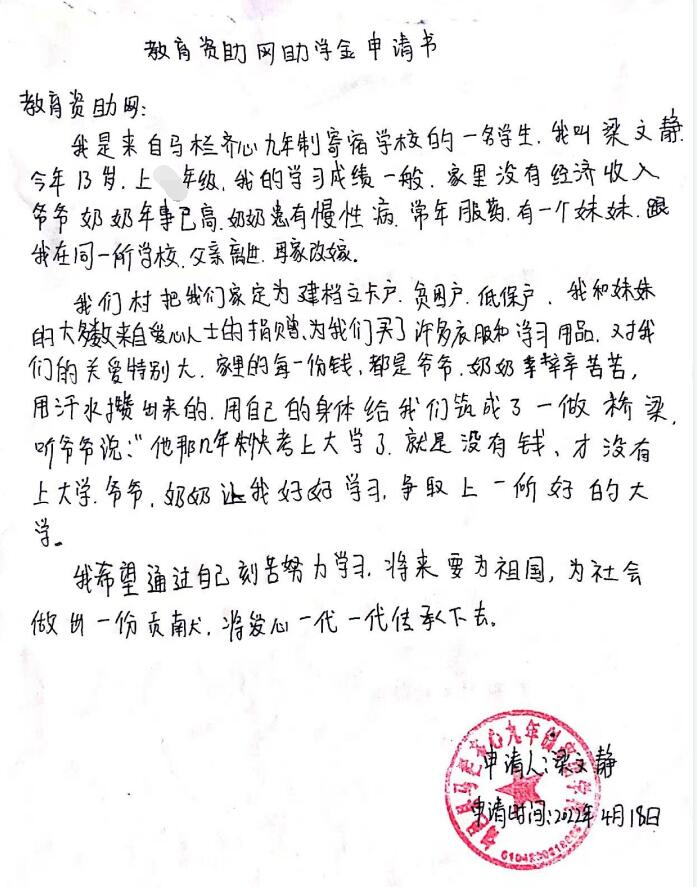 教育资助网助学金申请书
教育资助网:
我是来自马栏齐心九年制寄宿学校的一名学生.我叫梁文静.
今年13岁.上 年级.我的学习成绩一般.家里没有经济收入
爷爷奶奶年事已高.奶奶患有慢性病.常年服药.有一个妹妹.跟
我在同一所学校.父亲离世.再家改嫁.
我们村把我们家定为建档立卡户.贫困户.低保户.我和妹妹
的大多数来自爱心人士的捐赠,为我们买了许多衣服和学习用品.对我
们的关爱特别大.家里的每一份钱,都是爷爷.奶奶辛辛苦苦,
用汗水攒出来的.用自己的身体给我们筑成了一做桥梁,
听爷爷说:“他那几年快考上大学了.就是没有钱、才没有
上大学.爷爷.奶奶让我好好学习.争取上一所好的大
学。
我希望通过自己刻苦努力学习.将来要为祖国,为社会
做出一份贡献.将爱心一代一代传承下去。
申请人:梁文静
申请时间:2022年4月18日